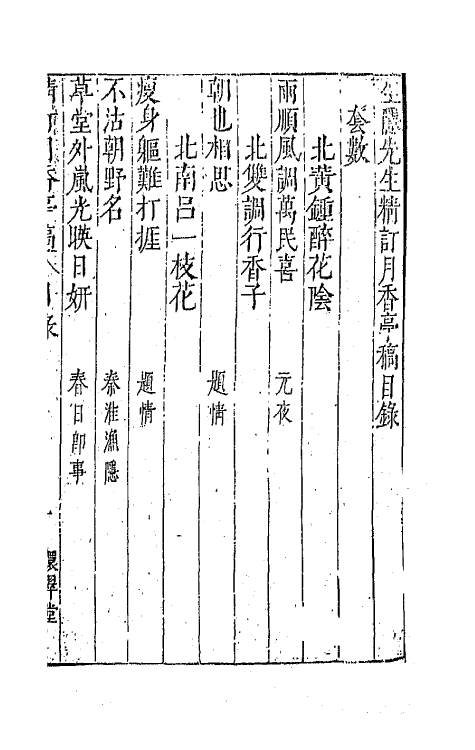 坐隱先生精訂月香亭稿目錄
套數
北黃鍾醉花陰
雨順風調萬民喜 元夜
北雙調行香子
朝也相思 題情
北南呂一枝花
瘦身軀難打捱 題情
不沽朝野名 秦淮漁隱
草堂外嵐光映日妍 春日即事
月香亭稿 目錄 一 環翠堂